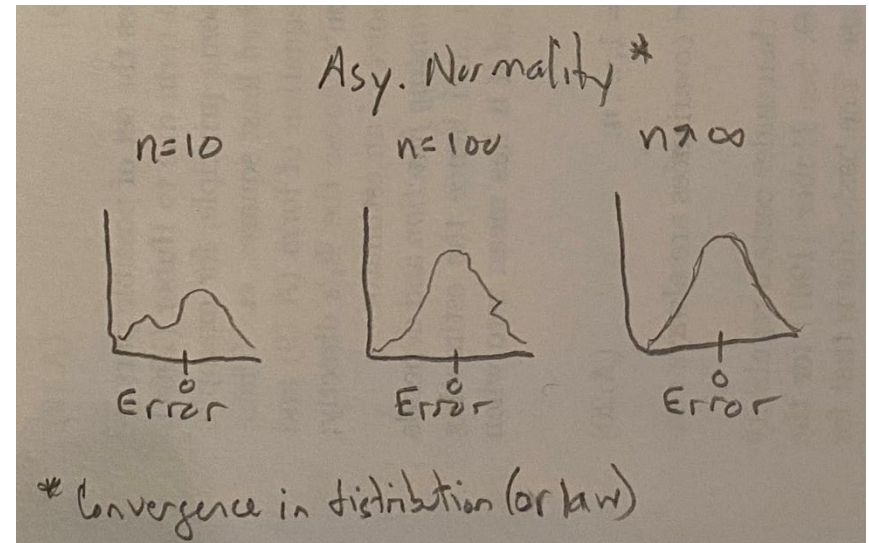 Asy. Normality*
n=10 n=100 n→∞
0 0 0
Error Error Error
* Convergence in distribution (or law)